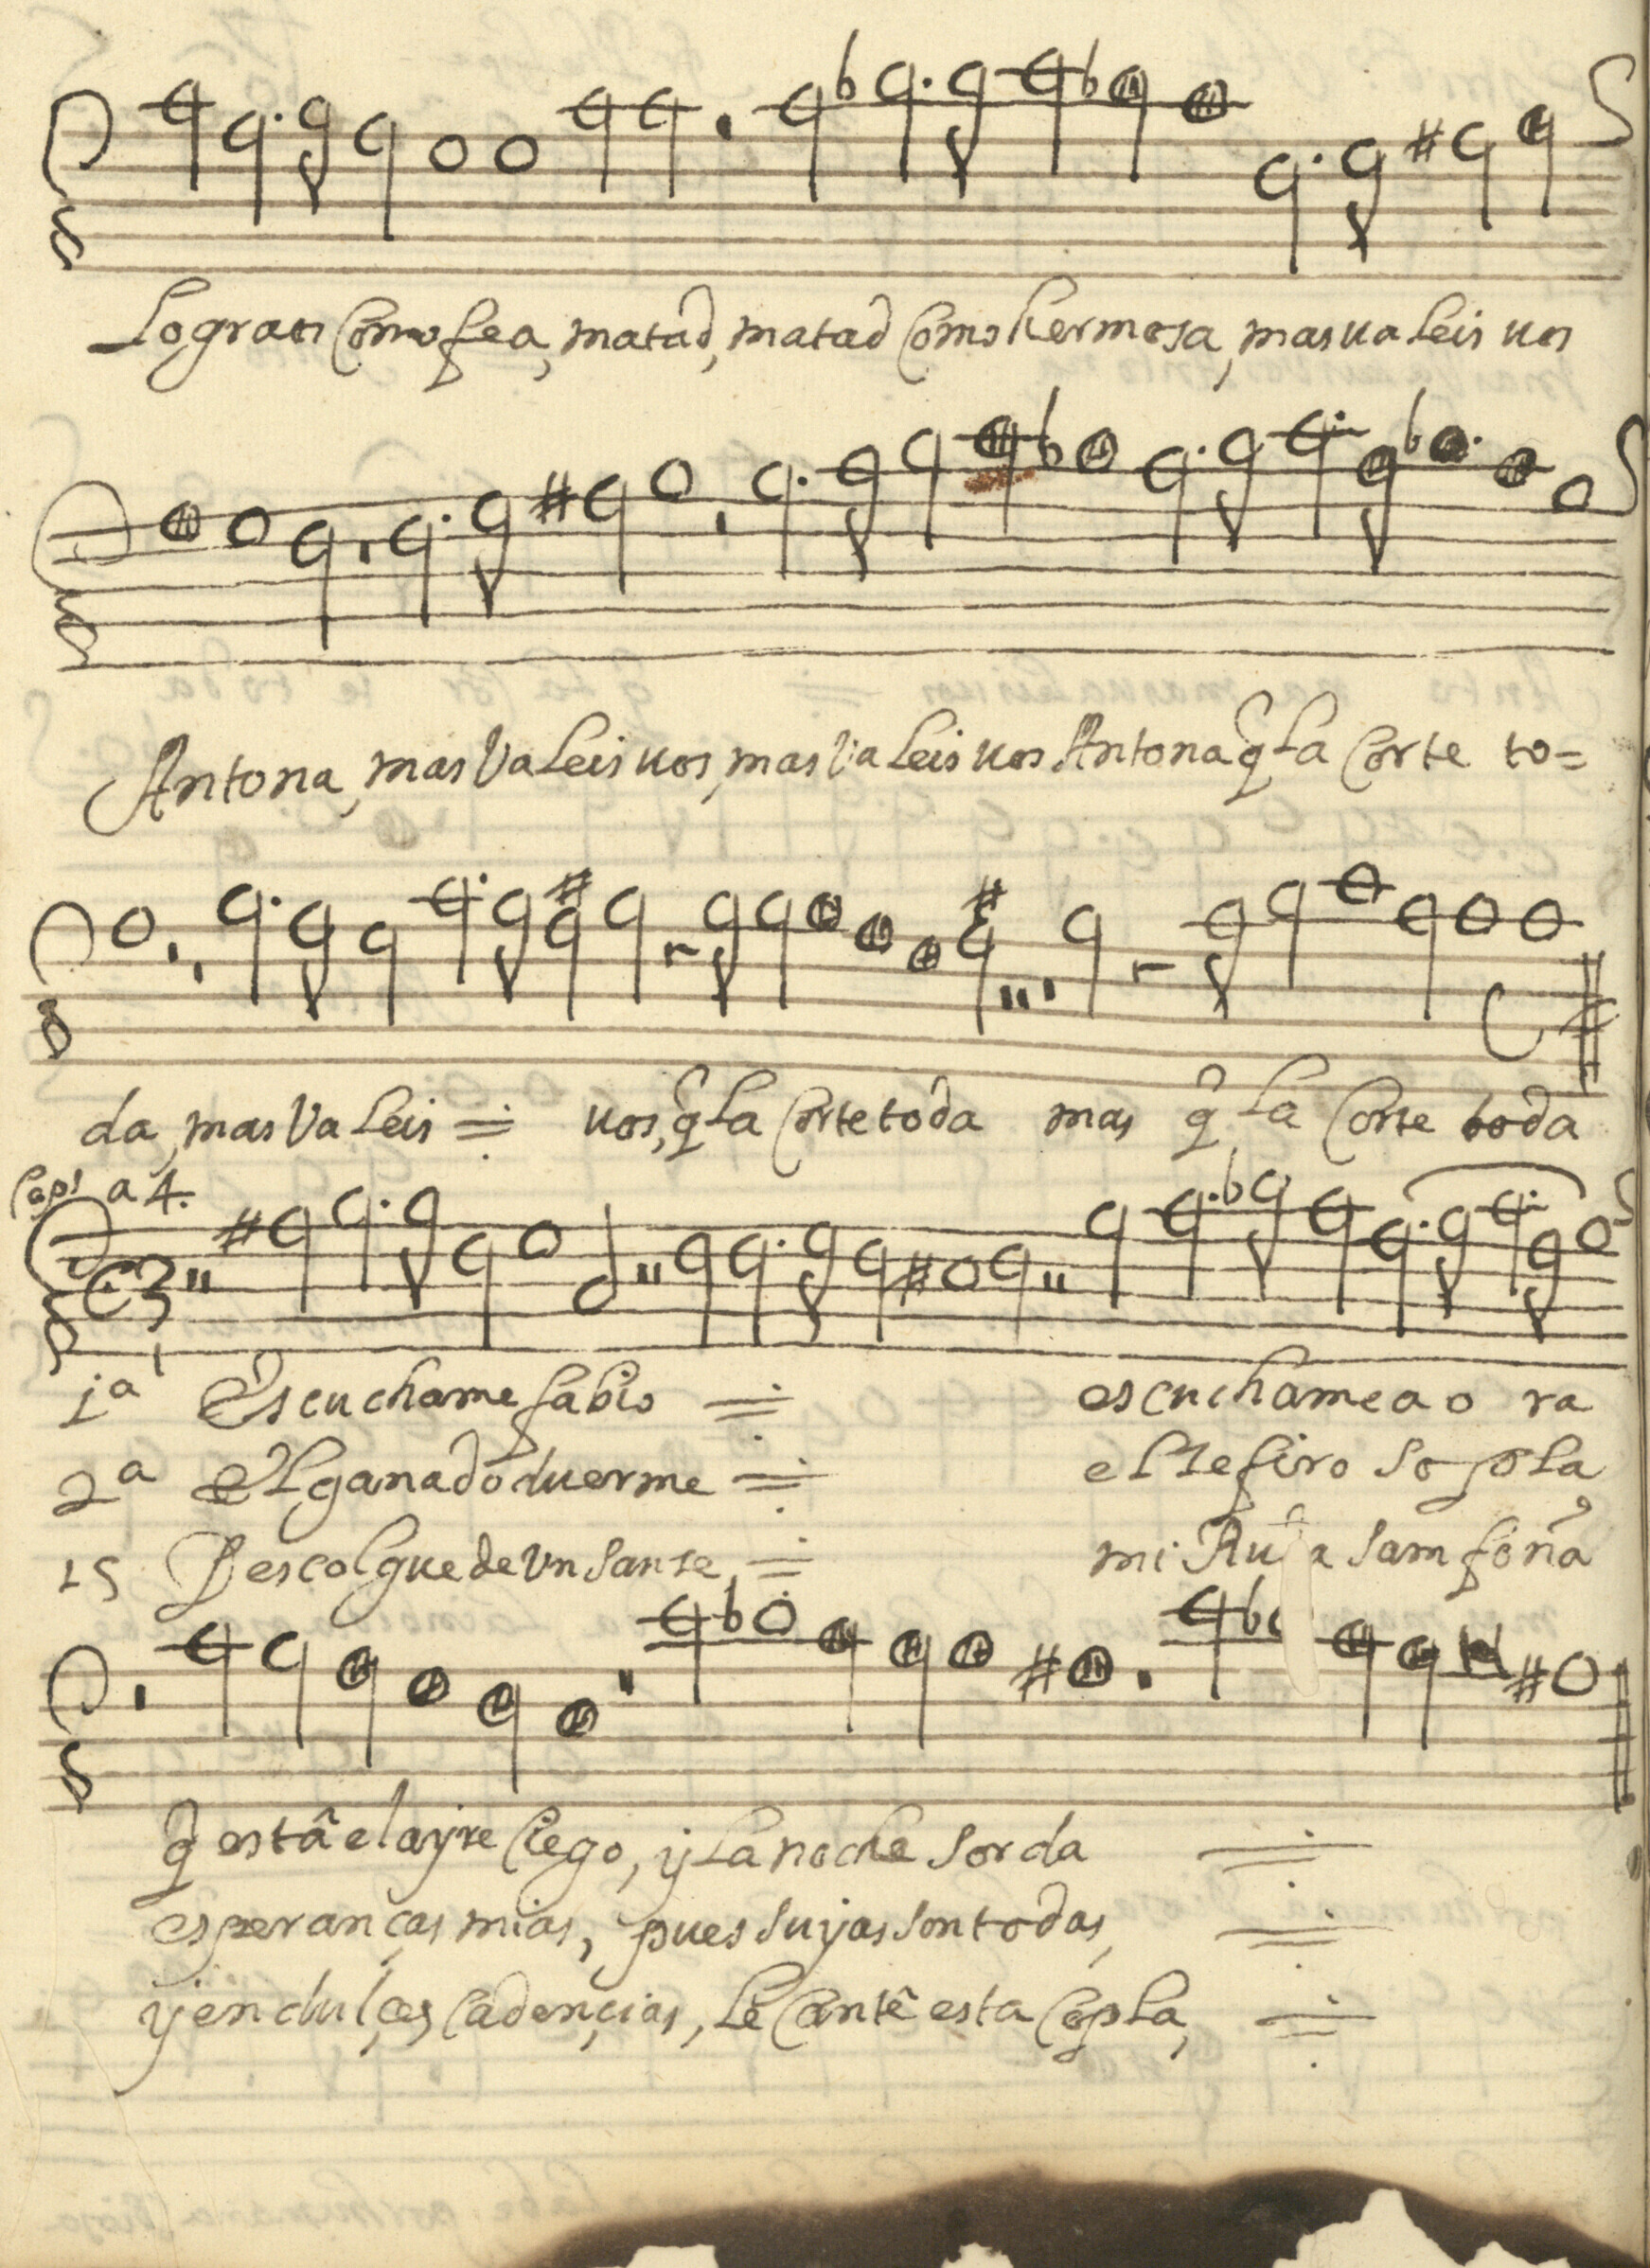 Lograd como fea, matad, matad como hermosa, mas valeis vos
Antona, mas Valeis vos, mas Valeis vos Antona q̃ La Corte to=
da, mas Valeis =/ vos, q̃ La Corte toda mas q̃ La Corte toda
Cop.ˢ a 4.
1ª Escuchame fabio =/ escuchame a o ra
2ª El ganado duerme =/ el zefiro sopla
15 Descolgue de Vn sauze, =/ mi samfoña
q̃ està el ayre Ciego, y La noche Sorda =/
esperanças mias, pues suyas son todas, =/
y en dulçes Cadençias, Le Cantè esta Copla, =/